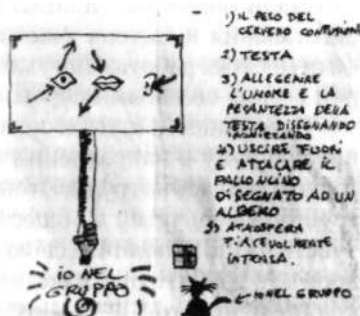 1) IL PESO DEL
CERVERO CONTUSIONI
2) TESTA
3) ALLEGERIRE
L'UMORE E LA
PESANTEZZA DELLA
TESTA DISEGNANDO
4) USCIRE FUORI
E ATTACARE IL
PALLONCINO
DISEGNATO AD UN
ALBERO
5) ATMOSFERA
INTENSA.
IO NEL
GRUPPO
IO NEL GRUPPO